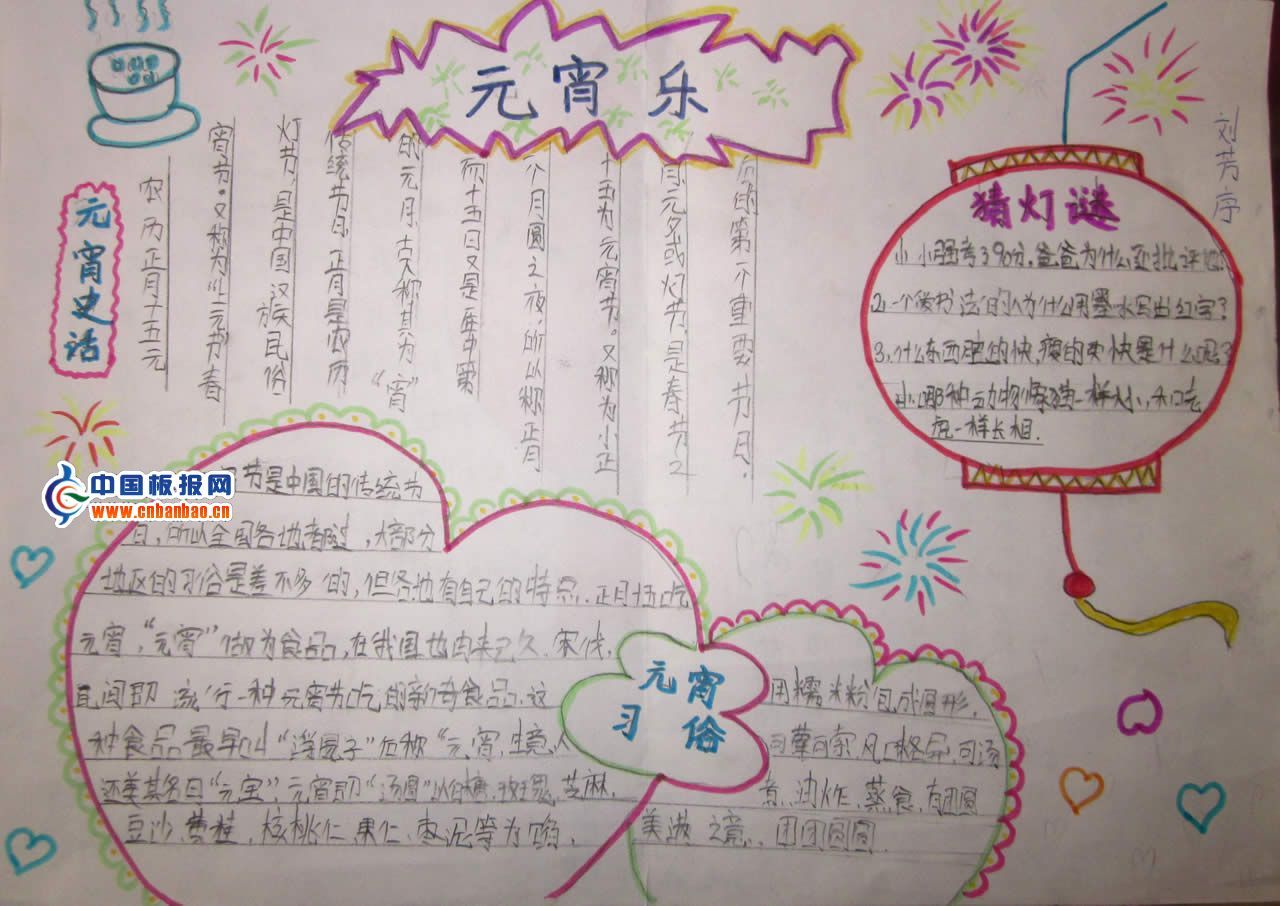 元宵乐
刘芳序
元宵史话
农历正月十五元
宵节。又称为"上元节"春
灯节,是中国汉族民俗
传统节日,正月是农历
的元月,古人称其为"宵"
而十五日又是一年中第
一个月圆之夜,所以称正月
十五为元宵节。又称为小正
月元夕或灯节,是春节之
后的第一个重要节日.
猜灯谜
1. 小胖考了90分,爸爸为什么还批评他?
2. 一个做书法的人为什么用墨水写出红字?
3. 什么东西胖的快,瘦的更快是什么呢?
4. 哪种动物像猫一样大小,和老
虎一样长相.
中国板报网
www.cnbanbao.cn
节是中国的传统节
日,所以全国各地都过,大部分
地区的习俗是差不多的,但各地有自己的特点.正月十五吃
元宵,"元宵"做为食品,在我国也由来已久.宋代,
民间即流行一种元宵节吃的新奇食品.这
种食品最早叫"浮圆子"后称"元宵,生意人
还美其名曰"元宝".元宵即"汤圆"以白糖.玫瑰.芝麻.
豆沙.黄桂.核桃仁.果仁.枣泥等为馅,
元宵
习俗
用糯米粉包成圆形,
可荤可素,风味各异,可汤
煮.油炸.蒸食,有团圆
美满之意.团团圆圆.